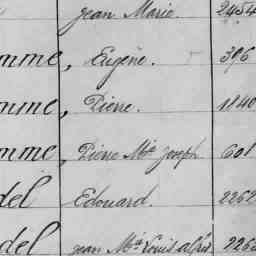 Jean Marie 2454
mme, Eugène. 396
mme, Pierre. 1840
mme, Pierre Mie Joseph 601
del Edouard. 2262
del Jean Mie Louis